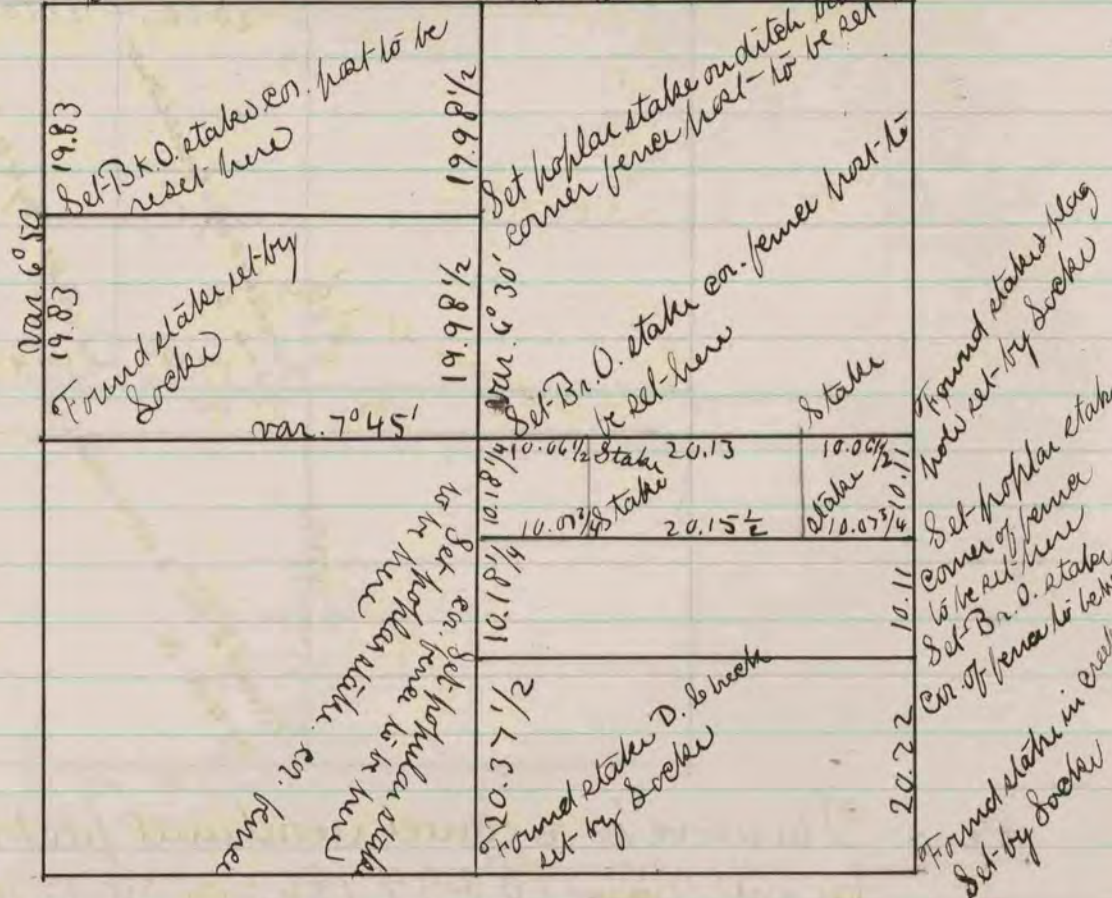 Set Bk O. stake cor. post to be
reset here
19.83
19.98 1/2
Var 6° 50
Set poplar stake on ditch
corner fence post to be set
Found stake set by
Locke
19.83
19.98 1/2
var. 7° 45'
Var. 6° 30'
Set Br. O. stake cor. fence post to
be set here
Stake
Found stake & plug
hole set by Locke
10.06 1/2
Stake
20.13
10.06 1/2
10.18 1/4
Stake
Stake
10.11
10.07 3/4
20.15 1/2
10.07 3/4
Set poplar stake
corner of fence
to be set here
10.18 1/4
10.11
Set Br. O. stake
cor. of fence to be
Set poplar stake
cor. fence to be here
Set poplar stake. cor. fence
to be here
20.37 1/2
20.22
Found stake D.
set by Locke
Found stake in creek
Set by Locke